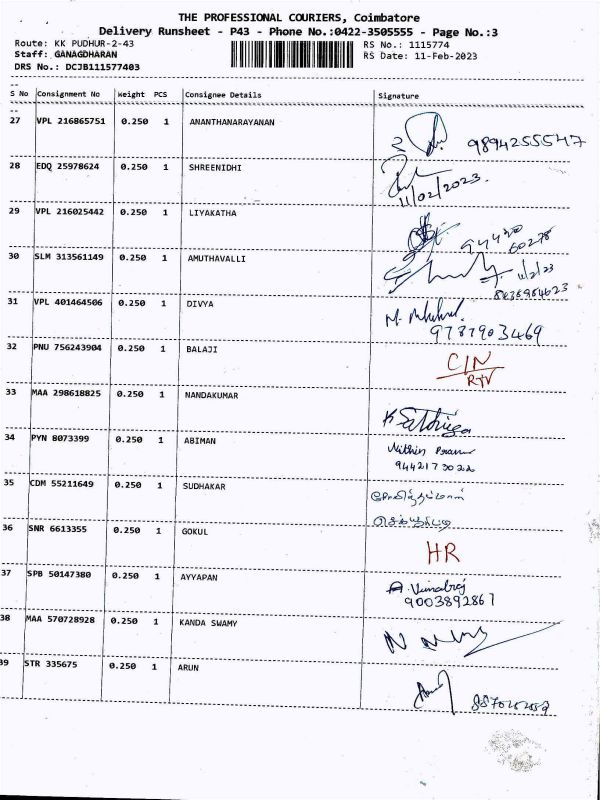 THE PROFESSIONAL COURIERS, Coimbatore
Delivery Runsheet - P43 - Phone No.:0422-3505555 - Page No.:3
Route: KK PUDHUR-2-43 RS No.: 1115774
Staff: GANAGDHARAN RS Date: 11-Feb-2023
DRS No.: DCJB111577403
S No Consignment No Weight PCS Consignee Details Signature
27 VPL 216865751 0.250 1 ANANTHANARAYANAN
9894255547
28 EDQ 25978624 0.250 1 SHREENIDHI
11/02/2023.
29 VPL 216025442 0.250 1 LIYAKATHA
94420
60278
30 SLM 313561149 0.250 1 AMUTHAVALLI
11/2/23
31 VPL 401464506 0.250 1 DIVYA
9787903469
32 PNU 756243904 0.250 1 BALAJI
C/N
RTV
33 MAA 298618825 0.250 1 NANDAKUMAR
34 PYN 8073399 0.250 1 ABIMAN
Nithin
9442173022
35 CDM 55211649 0.250 1 SUDHAKAR
36 SNR 6613355 0.250 1 GOKUL
HR
37 SPB 50147380 0.250 1 AYYAPAN
A. Vimalraj
9003892867
38 MAA 570728928 0.250 1 KANDA SWAMY
39 STR 335675 0.250 1 ARUN